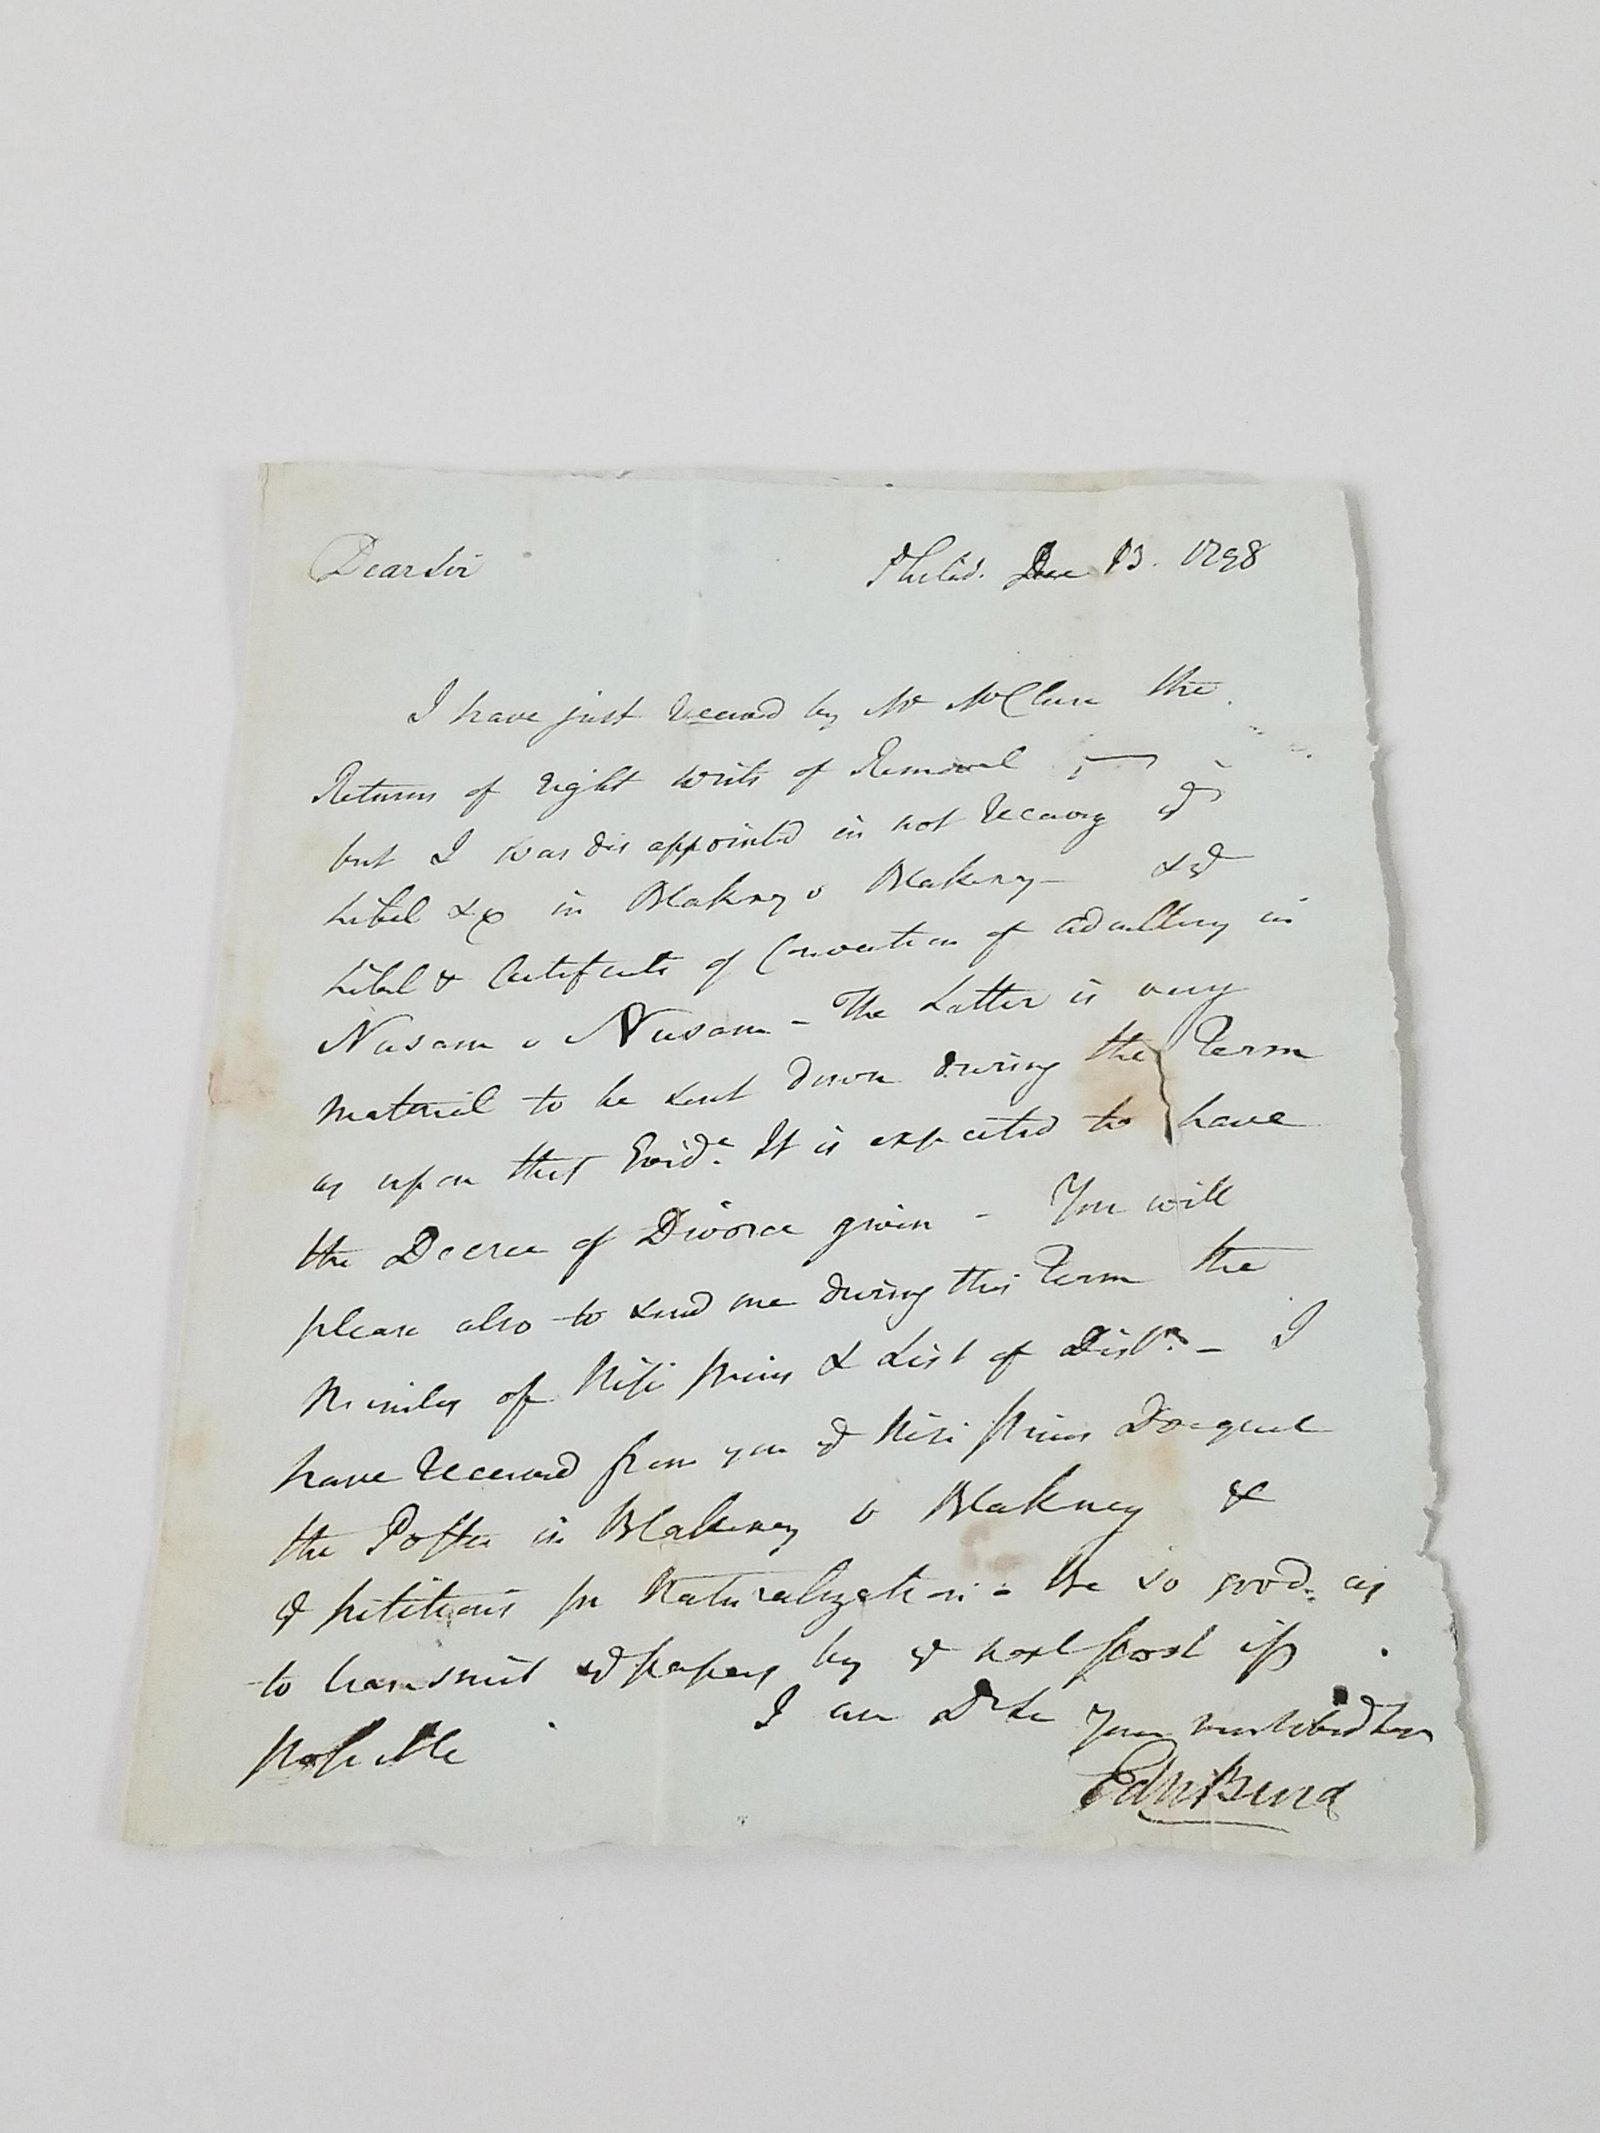 Dear Sir
Philad. Dec 13. 1798
I have just received by Mr McClure the
Returns of eight writs of Removal
but I was disappointed in not receiving
Libel &c in Blakney v Blakeney —
Libel & Certificate of Conviction of adultery in
Nusam v Nusam - The Latter is very
material to be sent down during the Term
as upon that Evide. It is expected to have
the Decree of Divorce given - You will
please also to send me during this Term the
Minutes of Nisi prius & List of
 - I
have received from you Nisi prius Docquet
the Postea in Blakeney v Blakney &
petitions for Naturalization - Be so good as
to transmit papers by next post if
possible
I am Dr Sir Your
Edw Burd